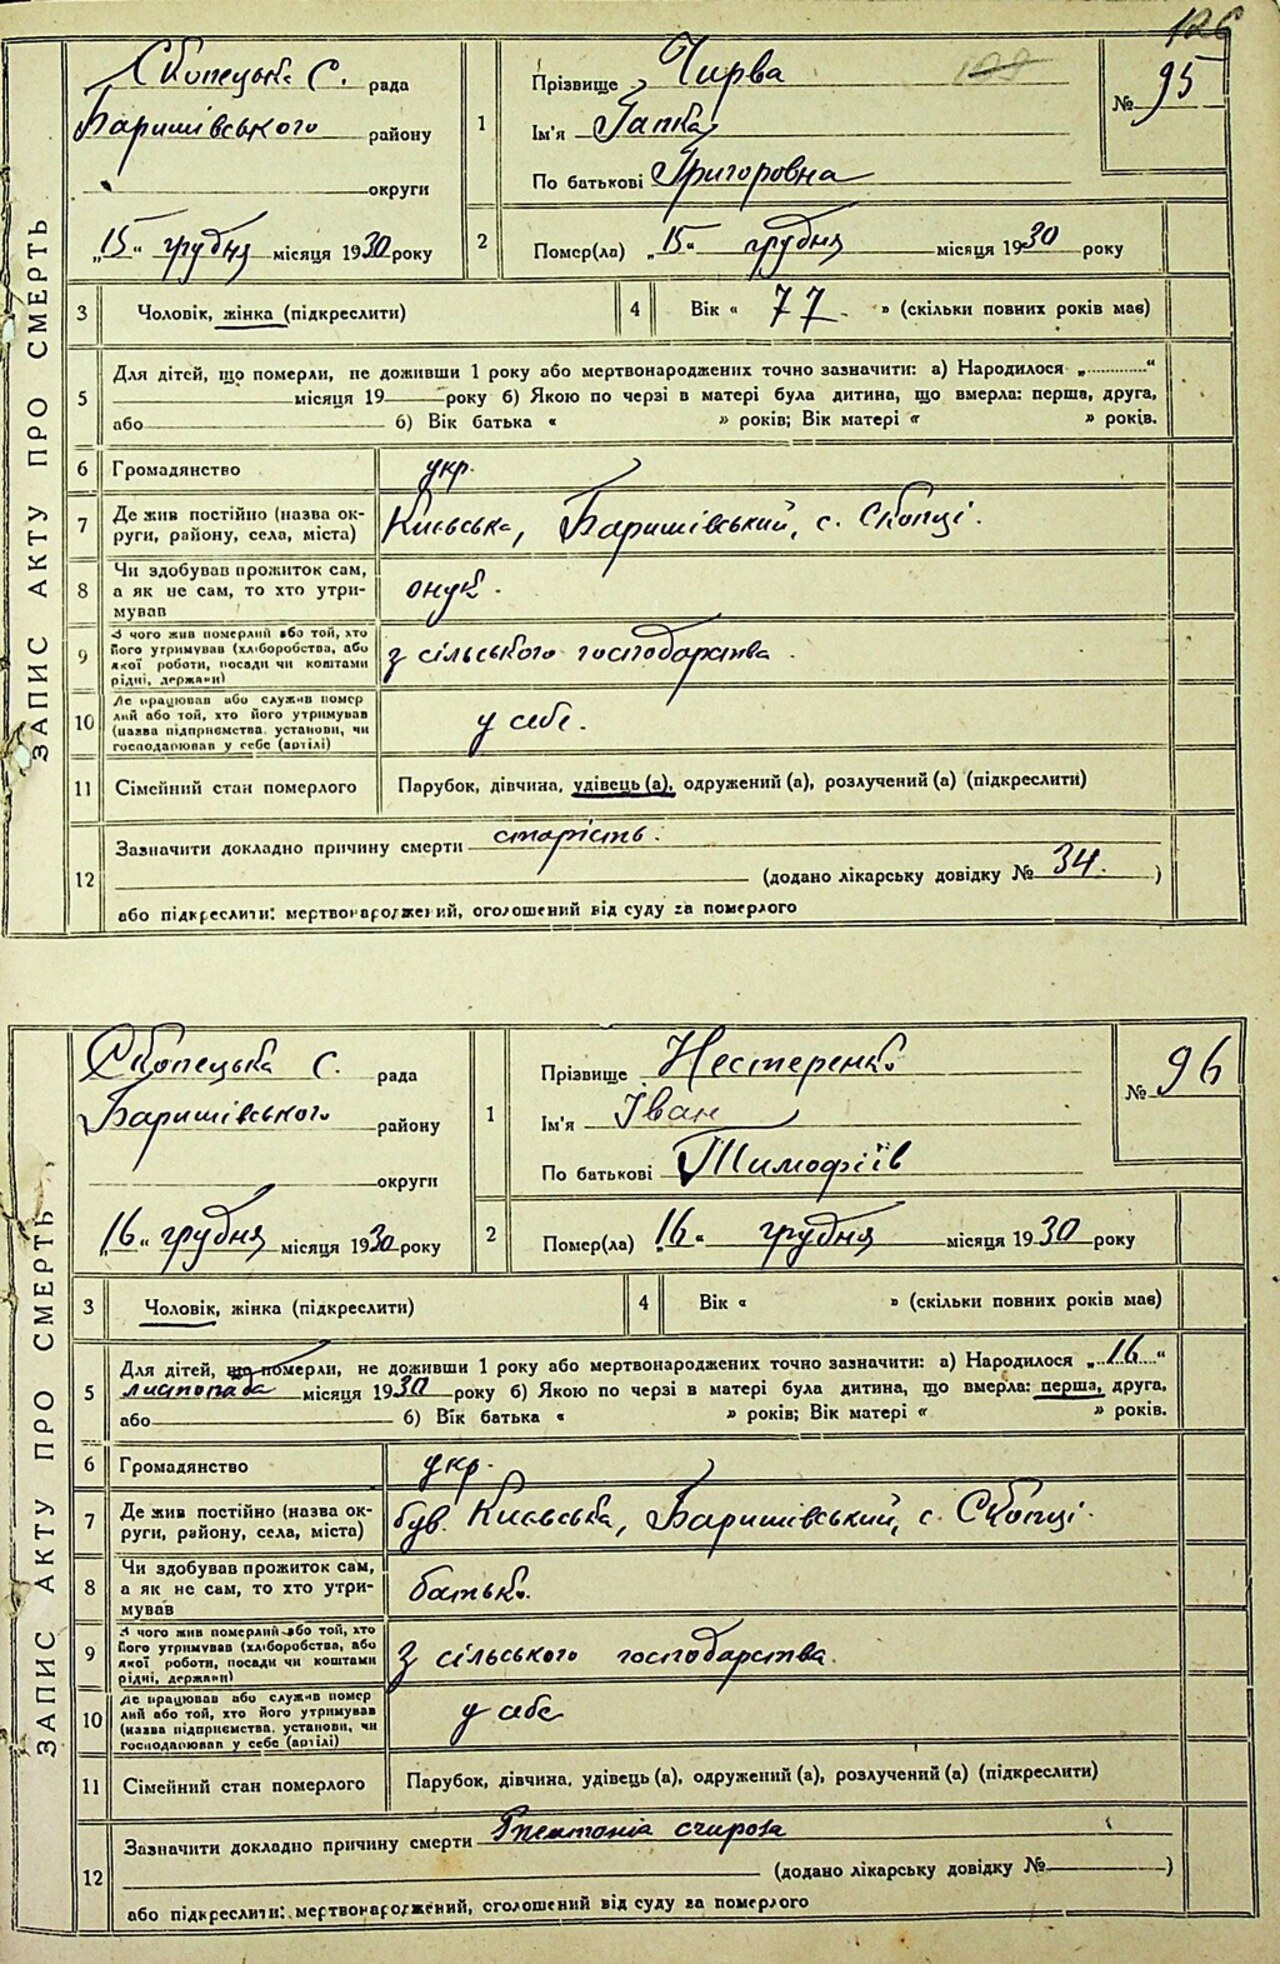 126
ЗАПИС АКТУ ПРО СМЕРТЬ
Скопецька С. рада
Баришівського району
округи
„15“ грудня місяця 1930 року
1
Прізвище Чирва
Ім'я Гапка
По батькові Григоровна
№ 95
2 Помер(ла) „15“ грудня місяця 1930 року
3 Чоловік, жінка (підкреслити)
4 Вік « 77 » (скільки повних років має)
5 Для дітей, що померли, не доживши 1 року або мертвонароджених точно зазначити: а) Народилося „ “
місяця 19 року б) Якою по черзі в матері була дитина, що вмерла: перша, друга,
або б) Вік батька « » років; Вік матері « » років.
6 Громадянство укр.
7 Де жив постійно (назва ок-
руги, району, села, міста) Києвська, Баришівський, с. Скопці.
8 Чи здобував прожиток сам,
а як не сам, то хто утри-
мував онук.
9 З чого жив померлий або той, хто
його утримував (хліборобства, або
якої роботи, посади чи коштами
рідні, держави) з сільського господарства.
10 Де працював або служив помер
лий або той, хто його утримував
(назва підприємства, установи, чи
господарював у себе (артілі) у себе.
11 Сімейний стан померлого Парубок, дівчина, удівець (а), одружений (а), розлучений (а) (підкреслити)
12 Зазначити докладно причину смерти старість.
(додано лікарську довідку № 34. )
або підкреслити: мертвонароджений, оголошений від суду за померлого
ЗАПИС АКТУ ПРО СМЕРТЬ
Скопецька С. рада
Баришівського району
округи
„16“ грудня місяця 1930 року
1
Прізвище Нестеренко
Ім'я Іван
По батькові Тимофіїв
№ 96
2 Помер(ла) „16“ грудня місяця 1930 року
3 Чоловік, жінка (підкреслити)
4 Вік « » (скільки повних років має)
5 Для дітей, що померли, не доживши 1 року або мертвонароджених точно зазначити: а) Народилося „16“
листопада місяця 1930 року б) Якою по черзі в матері була дитина, що вмерла: перша, друга,
або б) Вік батька « » років; Вік матері « » років.
6 Громадянство укр.
7 Де жив постійно (назва ок-
руги, району, села, міста) був. Києвська, Баришівський, с. Скопці.
8 Чи здобував прожиток сам,
а як не сам, то хто утри-
мував батько.
9 З чого жив померлий або той, хто
його утримував (хліборобства, або
якої роботи, посади чи коштами
рідні, держави) З сільського господарства.
10 Де працював або служив помер
лий або той, хто його утримував
(назва підприємства, установи, чи
господарював у себе (артілі) у себе
11 Сімейний стан померлого Парубок, дівчина, удівець (а), одружений (а), розлучений (а) (підкреслити)
12 Зазначити докладно причину смерти
(додано лікарську довідку № )
або підкреслити: мертвонароджений, оголошений від суду за померлого